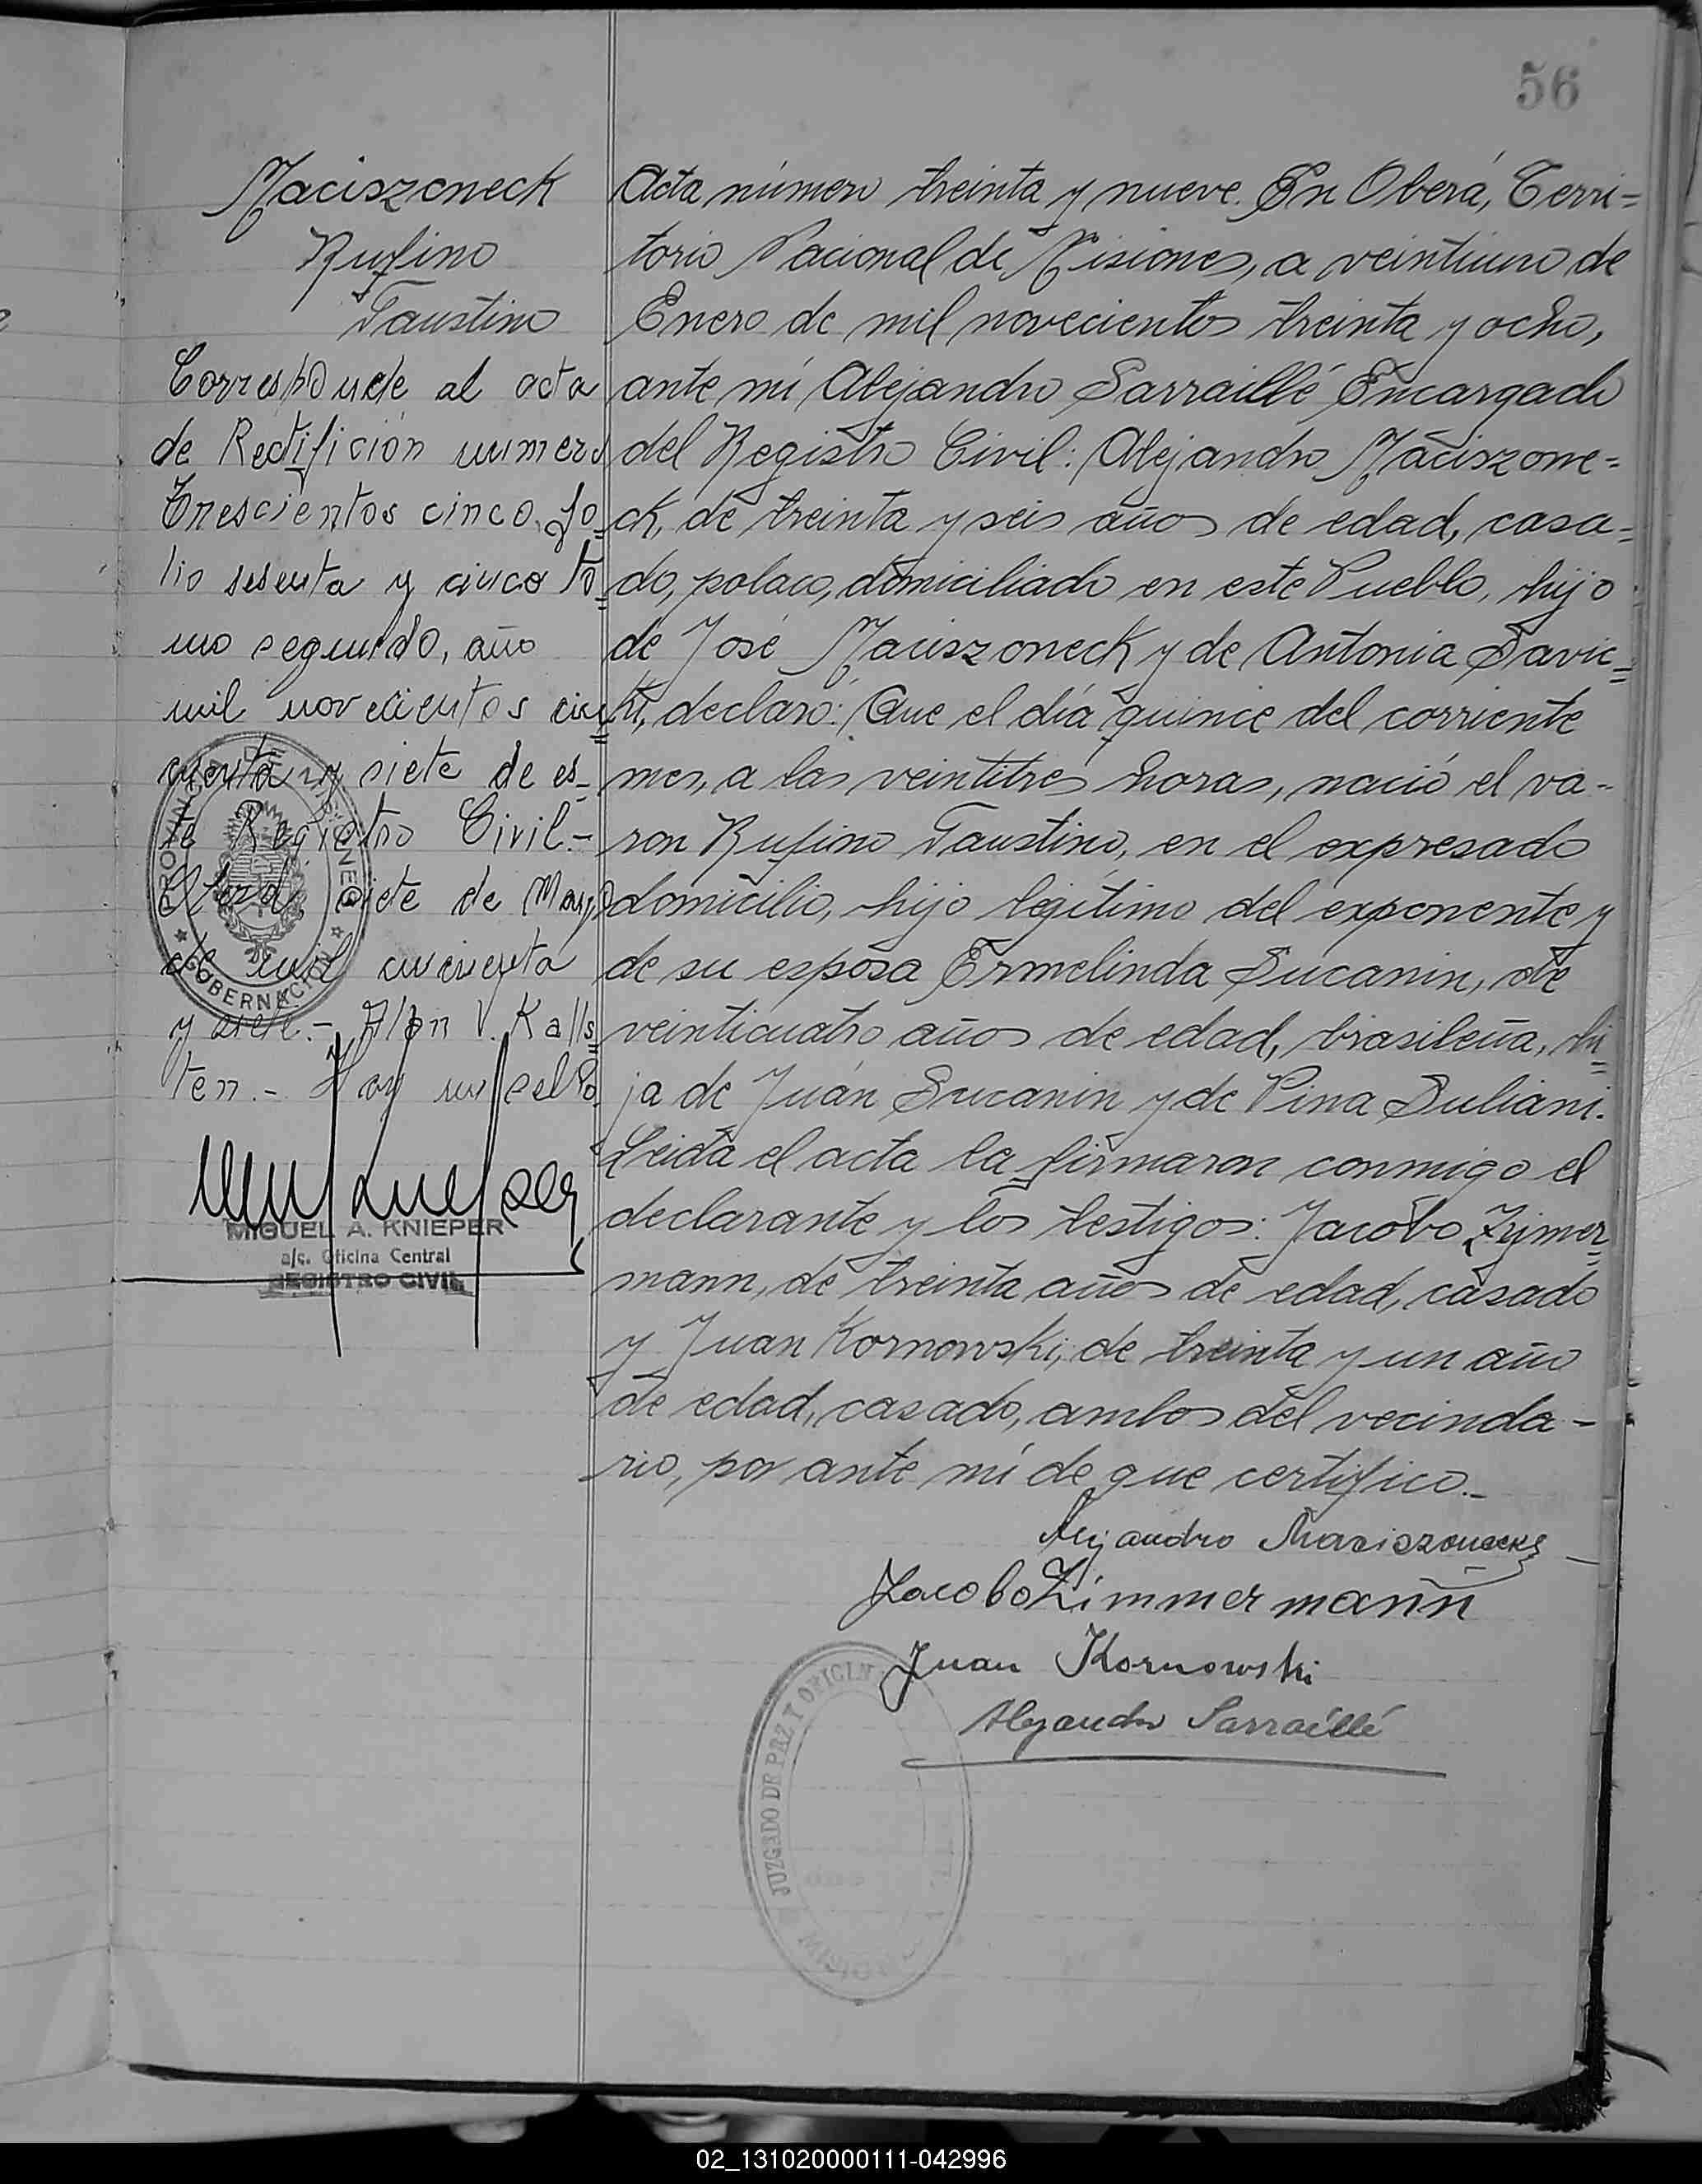 56
Maciszoneck
Rufino
Faustino
Corresponde al acta
de Rectificion numero
Trescientos cinco, fo=
lio sesenta y cinco to=
mo segundo, año
mil novecientos cin=
cuenta y siete de es-
te Registro Civil.-
Oberá, siete de Mayo
de mil cincuenta
y siete.- Alan V. Kalls=
ten.- Hay un sello.
PROVINCIA DE MISIONES
GOBERNACION
MIGUEL A. KNIEPER
a/c. Oficina Central
REGISTRO CIVIL
Acta número treinta y nueve. En Oberá, Terri=
torio Nacional de Misiones, a veintiuno de
Enero de mil novecientos treinta y ocho,
ante mí Alejandro Sarraillé Encargado
del Registro Civil: Alejandro Maciszone=
ck, de treinta y seis años de edad, casa=
do, polaco, domiciliado en este Pueblo, hijo
de José Maciszoneck y de Antonia Savic=
ki, declaró: Que el día quince del corriente
mes, a las veintitres horas, nació el va-
ron Rufino Faustino, en el expresado
domicilio, hijo legítimo del exponente y
de su esposa Ermelinda Sucanin, de
veinticuatro años de edad, brasileña, hi=
ja de Juán Sucanin y de Pina Suliani.
Leida el acta la firmaron conmigo el
declarante y los testigos: Jacobo Zimer=
mann, de treinta años de edad, casado
y Juan Kornowski, de treinta y un año
de edad, casado, ambos del vecinda-
rio, por ante mí de que certifico.-
Alejandro Maciszoneck
Jacobo Zimmermann
Juan Kornowski
Alejandro Sarraillé
JUZGADO DE PAZ Y OFICIN
MISIONES
02_131020000111-042996